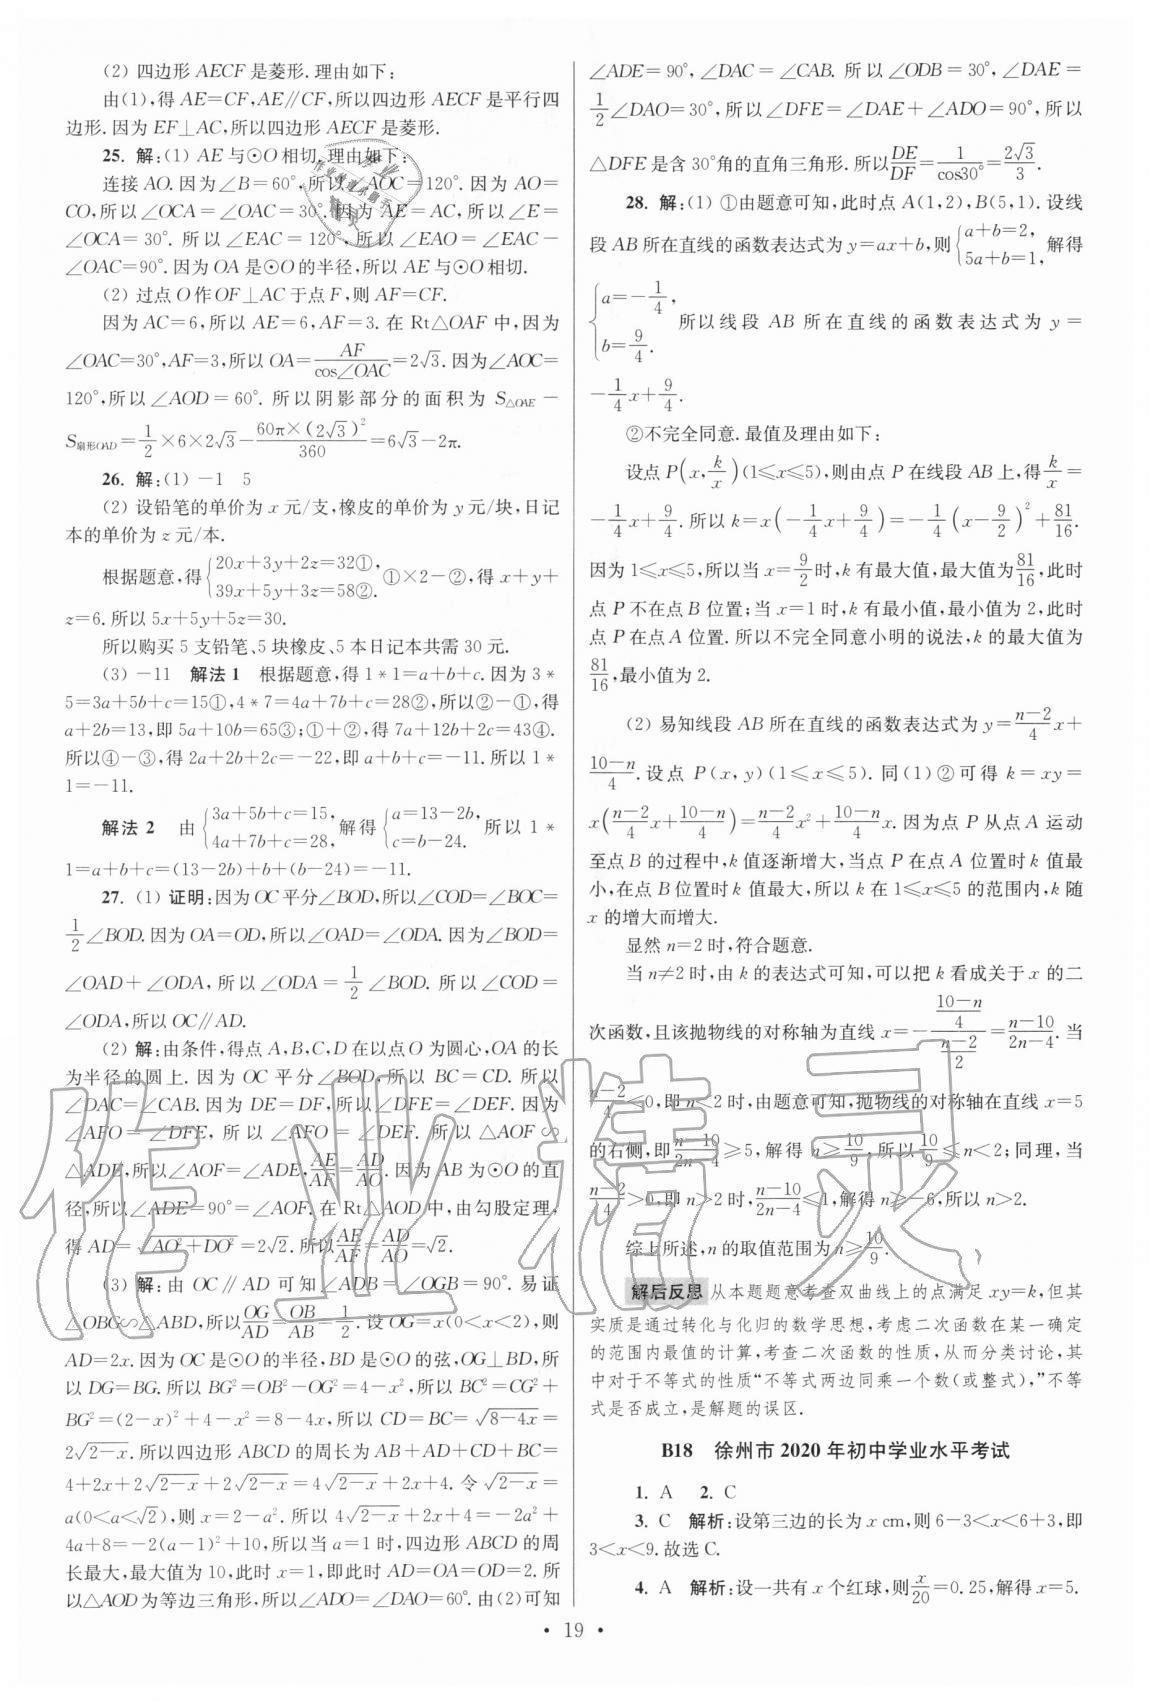 (2) 四边形 AECF 是菱形. 理由如下:
由(1), 得 AE=CF, AE∥CF, 所以四边形 AECF 是平行四
边形. 因为 EF⊥AC, 所以四边形 AECF 是菱形.
25. 解:(1) AE 与⊙O 相切. 理由如下:
连接 AO. 因为∠B=60°, 所以∠AOC=120°. 因为 AO=
CO, 所以∠OCA=∠OAC=30°. 因为 AE=AC, 所以∠E=
∠OCA=30°. 所以∠EAC=120°, 所以∠EAO=∠EAC−
∠OAC=90°. 因为 OA 是⊙O 的半径, 所以 AE 与⊙O 相切.
(2) 过点 O 作 OF⊥AC 于点 F, 则 AF=CF.
因为 AC=6, 所以 AE=6, AF=3. 在 Rt△OAF 中, 因为
∠OAC=30°, AF=3, 所以 OA=AF/cos∠OAC=2√3. 因为∠AOC=
120°, 所以∠AOD=60°. 所以阴影部分的面积为 S△OAE−
S扇形OAD=1/2×6×2√3−60π×(2√3)²/360=6√3−2π.
26. 解:(1) −1 5
(2) 设铅笔的单价为 x 元/支, 橡皮的单价为 y 元/块, 日记
本的单价为 z 元/本.
根据题意, 得{20x+3y+2z=32①, 39x+5y+3z=58②. ①×2−②, 得 x+y+
z=6. 所以 5x+5y+5z=30.
所以购买 5 支铅笔、5 块橡皮、5 本日记本共需 30 元.
(3) −11 解法 1 根据题意, 得 1*1=a+b+c. 因为 3*
5=3a+5b+c=15①, 4*7=4a+7b+c=28②, 所以②−①, 得
a+2b=13, 即 5a+10b=65③; ①+②, 得 7a+12b+2c=43④.
所以④−③, 得 2a+2b+2c=−22, 即 a+b+c=−11. 所以 1*
1=−11.
解法 2 由{3a+5b+c=15, 4a+7b+c=28, 解得{a=13−2b, c=b−24. 所以 1*
1=a+b+c=(13−2b)+b+(b−24)=−11.
27. (1) 证明:因为 OC 平分∠BOD, 所以∠COD=∠BOC=
1/2∠BOD. 因为 OA=OD, 所以∠OAD=∠ODA. 因为∠BOD=
∠OAD+∠ODA, 所以∠ODA=1/2∠BOD. 所以∠COD=
∠ODA, 所以 OC∥AD.
(2) 解:由条件, 得点 A, B, C, D 在以点 O 为圆心, OA 的长
为半径的圆上. 因为 OC 平分∠BOD, 所以 BC=CD. 所以
∠DAC=∠CAB. 因为 DE=DF, 所以∠DFE=∠DEF. 因为
∠AFO=∠DFE, 所以∠AFO=∠DEF. 所以△AOF∽
△ADE, 所以∠AOF=∠ADE, AE/AF=AD/AO. 因为 AB 为⊙O 的直
径, 所以∠ADE=90°=∠AOF. 在 Rt△AOD 中, 由勾股定理,
得 AD=√(AO²+DO²)=2√2. 所以 AE/AF=AD/AO=√2.
(3) 解:由 OC∥AD 可知∠ADB=∠OGB=90°. 易证
△OBG∽△ABD, 所以 OG/AD=OB/AB=1/2. 设 OG=x(0<x<2), 则
AD=2x. 因为 OC 是⊙O 的半径, BD 是⊙O 的弦, OG⊥BD, 所
以 DG=BG. 所以 BG²=OB²−OG²=4−x², 所以 BC²=CG²+
BG²=(2−x)²+4−x²=8−4x, 所以 CD=BC=√(8−4x)=
2√(2−x). 所以四边形 ABCD 的周长为 AB+AD+CD+BC=
4+2x+2√(2−x)+2√(2−x)=4√(2−x)+2x+4. 令√(2−x)=
a(0<a<√2), 则 x=2−a². 所以 4√(2−x)+2x+4=−2a²+
4a+8=−2(a−1)²+10, 所以当 a=1 时, 四边形 ABCD 的周
长最大, 最大值为 10, 此时 x=1, 即此时 AD=OA=OD=2. 所
以△AOD 为等边三角形, 所以∠ADO=∠DAO=60°. 由(2)可知
∠ADE=90°, ∠DAC=∠CAB. 所以∠ODB=30°, ∠DAE=
1/2∠DAO=30°, 所以∠DFE=∠DAE+∠ADO=90°, 所以
△DFE 是含 30°角的直角三角形. 所以 DE/DF=1/cos30°=2√3/3.
28. 解:(1) ①由题意可知, 此时点 A(1,2), B(5,1). 设线
段 AB 所在直线的函数表达式为 y=ax+b, 则{a+b=2, 5a+b=1, 解得
{a=−1/4, b=9/4. 所以线段 AB 所在直线的函数表达式为 y=
−1/4x+9/4.
②不完全同意. 最值及理由如下:
设点 P(x, k/x)(1≤x≤5), 则由点 P 在线段 AB 上, 得 k/x=
−1/4x+9/4. 所以 k=x(−1/4x+9/4)=−1/4(x−9/2)²+81/16.
因为 1≤x≤5, 所以当 x=9/2时, k 有最大值, 最大值为81/16, 此时
点 P 不在点 B 位置; 当 x=1 时, k 有最小值, 最小值为 2, 此时
点 P 在点 A 位置. 所以不完全同意小明的说法, k 的最大值为
81/16, 最小值为 2.
(2) 易知线段 AB 所在直线的函数表达式为 y=(n−2)/4 x+
(10−n)/4. 设点 P(x, y)(1≤x≤5). 同(1)②可得 k=xy=
x((n−2)/4 x+(10−n)/4)=(n−2)/4 x²+(10−n)/4 x. 因为点 P 从点 A 运动
至点 B 的过程中, k 值逐渐增大, 当点 P 在点 A 位置时 k 值最
小, 在点 B 位置时 k 值最大, 所以 k 在 1≤x≤5 的范围内, k 随
x 的增大而增大.
显然 n=2 时, 符合题意.
当 n≠2 时, 由 k 的表达式可知, 可以把 k 看成关于 x 的二
次函数, 且该抛物线的对称轴为直线 x=−((10−n)/4)/((n−2)/2)=(n−10)/(2n−4). 当
(n−2)/4<0, 即 n<2 时, 由题意可知, 抛物线的对称轴在直线 x=5
的右侧, 即(n−10)/(2n−4)≥5, 解得 n≥10/9, 所以10/9≤n<2; 同理, 当
(n−2)/4>0, 即 n>2 时, (n−10)/(2n−4)≤1, 解得 n≥−6, 所以 n>2.
综上所述, n 的取值范围为 n≥10/9.
解后反思 从本题题意考查双曲线上的点满足 xy=k, 但其
实质是通过转化与化归的数学思想, 考虑二次函数在某一确定
的范围内最值的计算, 考查二次函数的性质, 从而分类讨论, 其
中对于不等式的性质“不等式两边同乘一个数(或整式),”不等
式是否成立, 是解题的误区.
B18 徐州市 2020 年初中学业水平考试
1. A 2. C
3. C 解析:设第三边的长为 x cm, 则 6−3<x<6+3, 即
3<x<9. 故选 C.
4. A 解析:设一共有 x 个红球, 则 x/20=0.25, 解得 x=5.
• 19 •
作业精灵